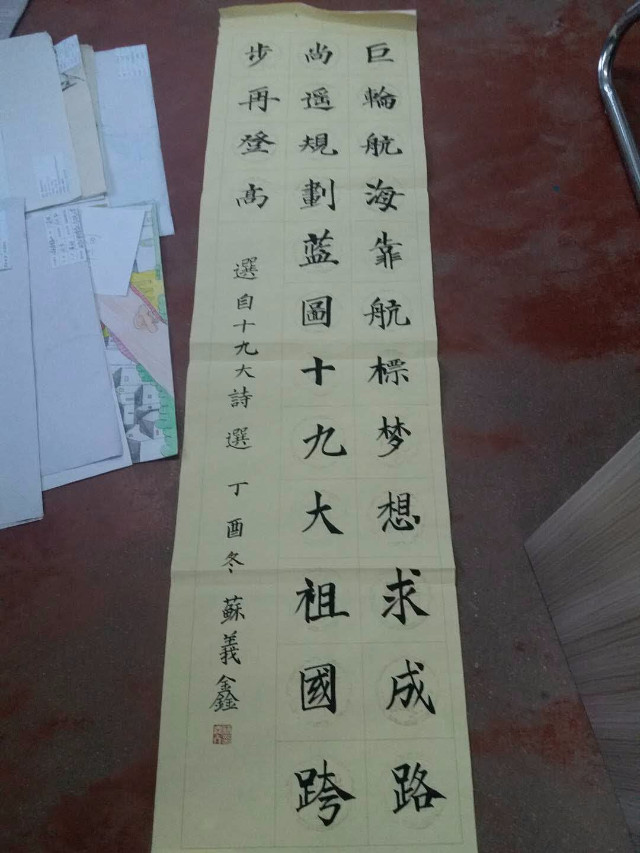 巨輪航海靠航標梦想求成路
尚遥規劃蓝圖十九大祖國跨
步再登高
選自十九大詩選 丁酉冬 蘇義鑫